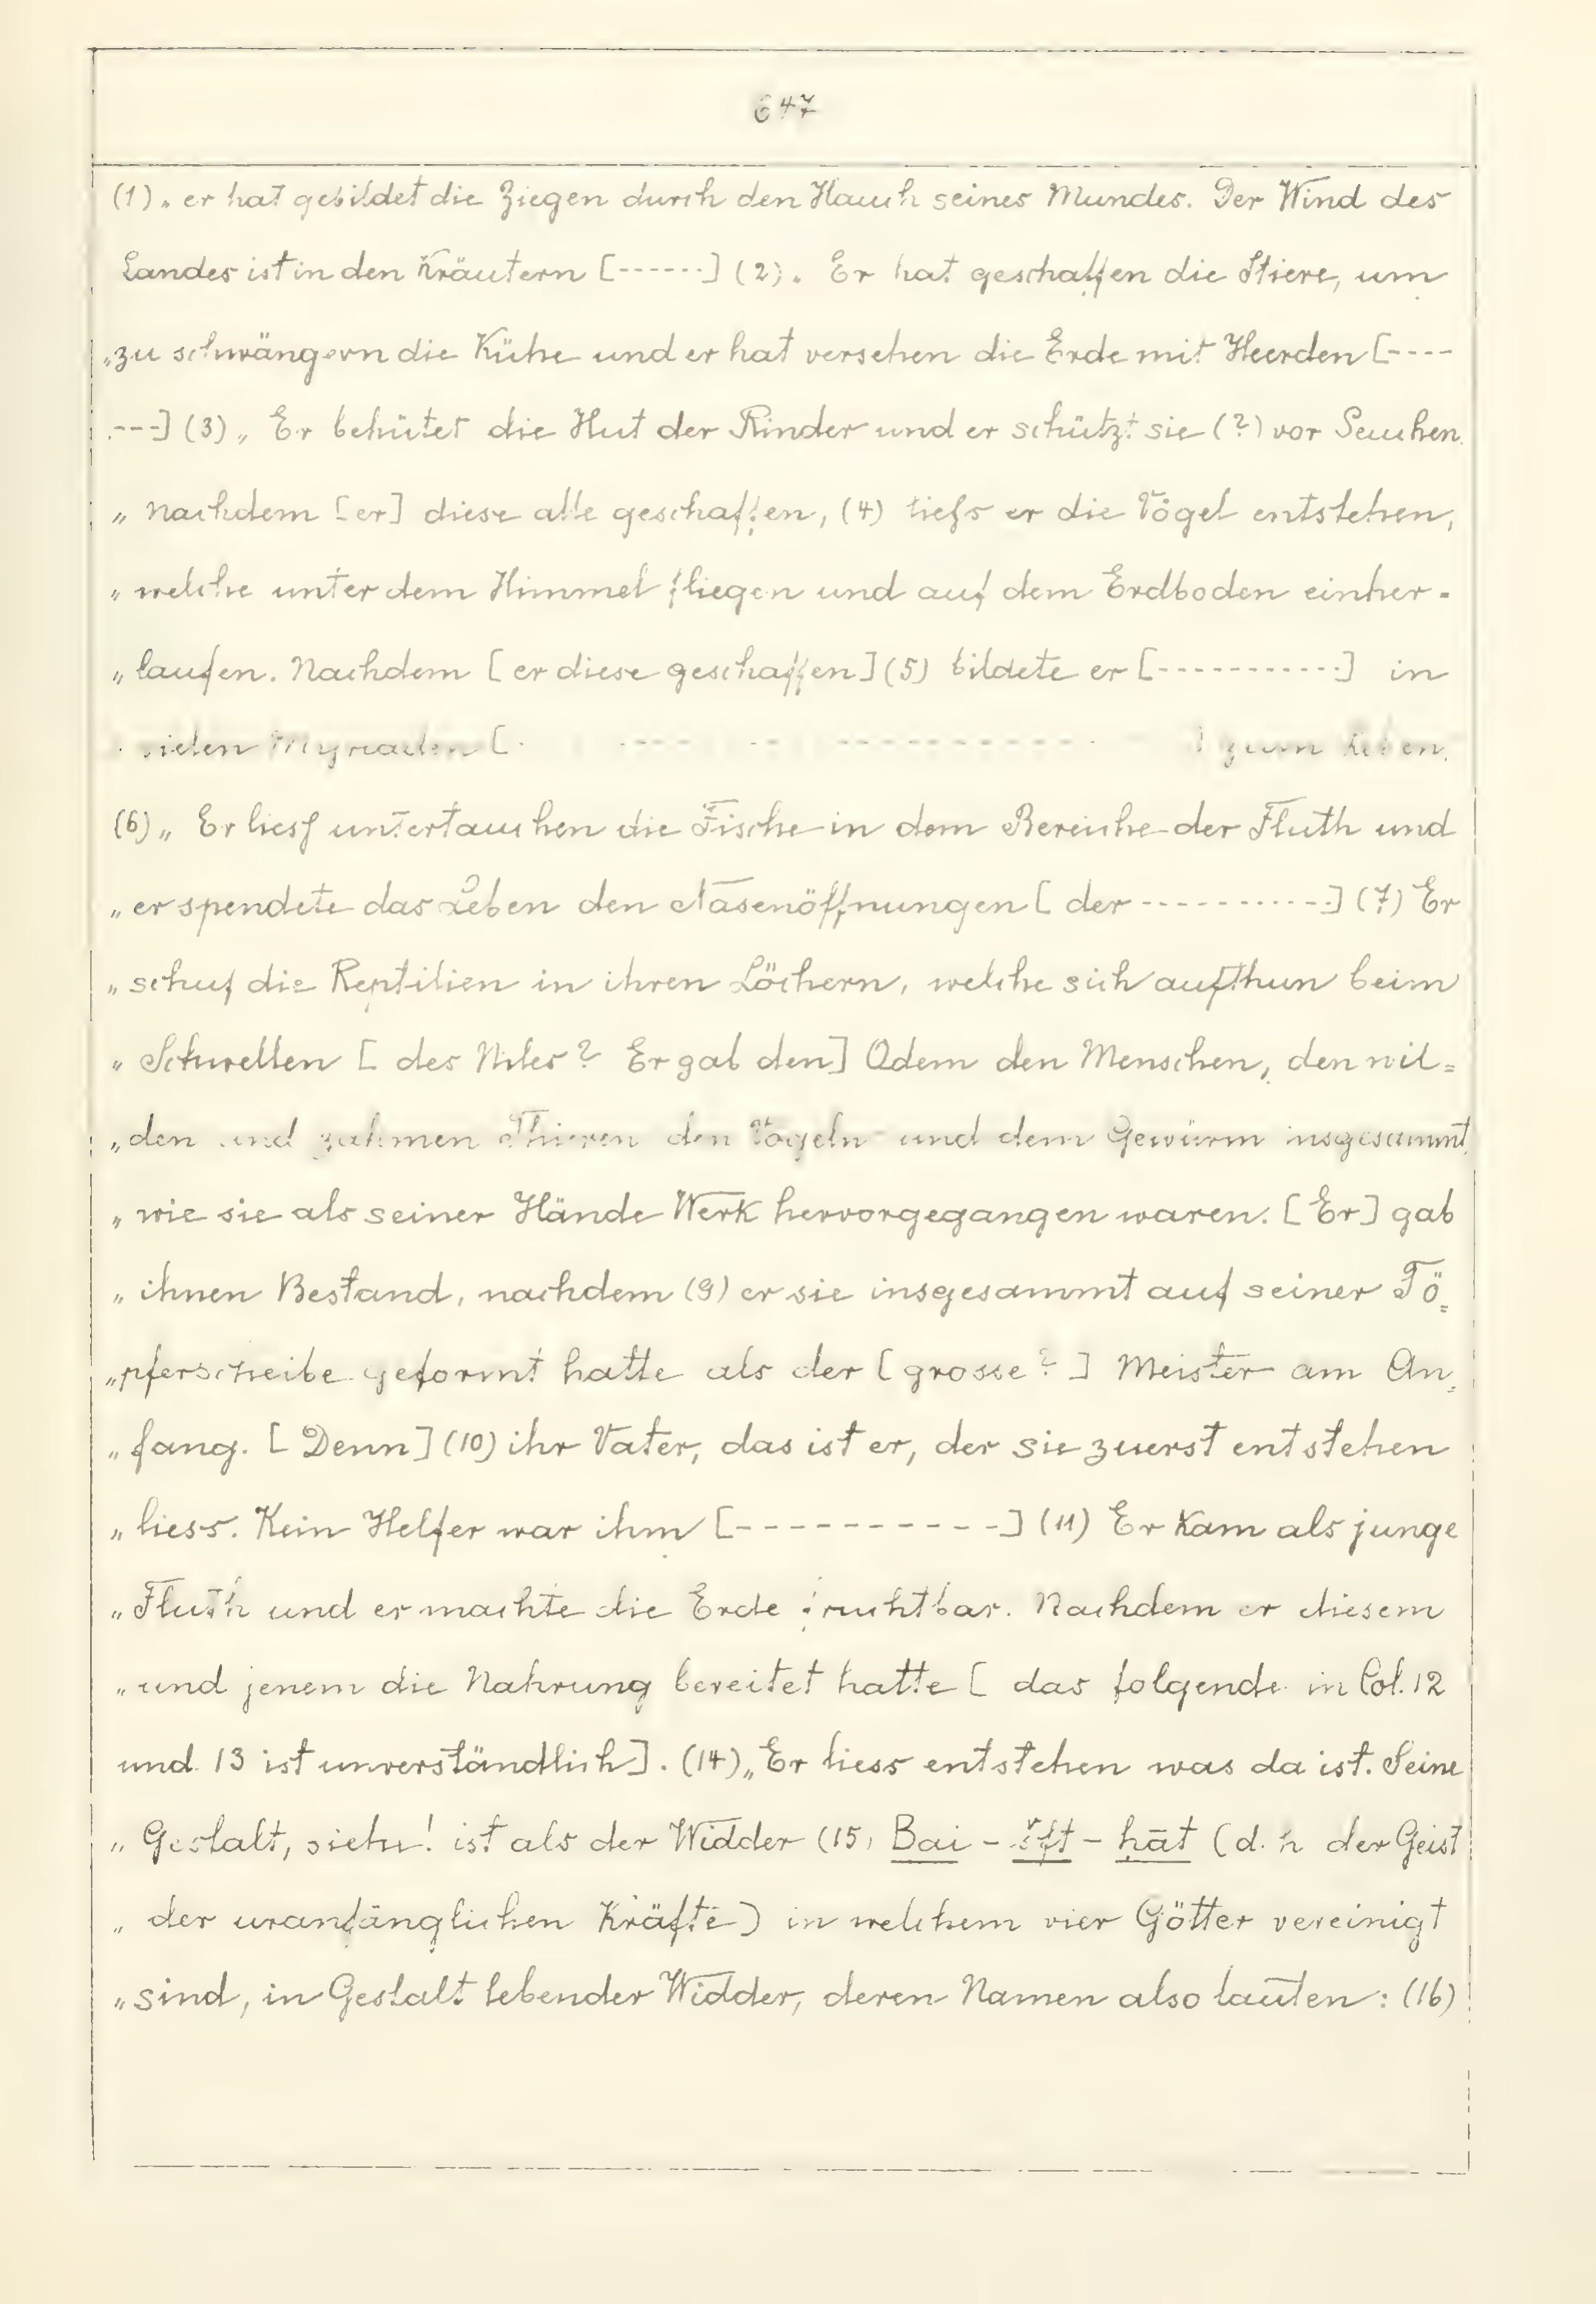 647
(1) „ er hat gebildet die Ziegen durch den Hauch seines Mundes. Der Wind des
Landes ist in den Kräutern [------] (2) „ Er hat geschaffen die Stiere, um
„ zu schwängern die Kühe und er hat versehen die Erde mit Heerden [----
---] (3) „ Er behütet die Hut der Rinder und er schützt sie (?) vor Seuchen.
„ Nachdem [er] diese alle geschaffen, (4) liefs er die Vögel entstehen,
„ welche unter dem Himmel fliegen und auf dem Erdboden einher-
„ laufen. Nachdem [er diese geschaffen] (5) bildete er [-----------] in
vielen Myriaden [- --- -- -----------] zum Leben.
(6) „ Er liefs untertauchen die Fische in dem Bereiche der Fluth und
„ er spendete das Leben den Nasenöffnungen [der -----------] (7) Er
„ schuf die Reptilien in ihren Löchern, welche sich aufthun beim
„ Schwellen [des Niles? Er gab den] Odem den Menschen, den wil=
„ den und zahmen Thieren den Vögeln und dem Gewürm insgesammt,
„ wie sie als seiner Hände Werk hervorgegangen waren. [Er] gab
„ ihnen Bestand, nachdem (9) er sie insgesammt auf seiner Tö=
„ pferscheibe geformt hatte als der [grosse?] Meister am An=
„ fang. [Denn] (10) ihr Vater, das ist er, der sie zuerst entstehen
„ liess. Kein Helfer war ihm [----------] (11) Er kam als junge
„ Fluth und er machte die Erde fruchtbar. Nachdem er diesem
„ und jenem die Nahrung bereitet hatte [das folgende in Col. 12
und 13 ist unverständlich]. (14) „ Er liess entstehen was da ist. Seine
„ Gestalt, siehe! ist als der Widder (15) Bai-šft-hāt (d. h der Geist
„ der uranfänglichen Kräfte) in welchem vier Götter vereinigt
„ sind, in Gestalt lebender Widder, deren Namen also lauten: (16)